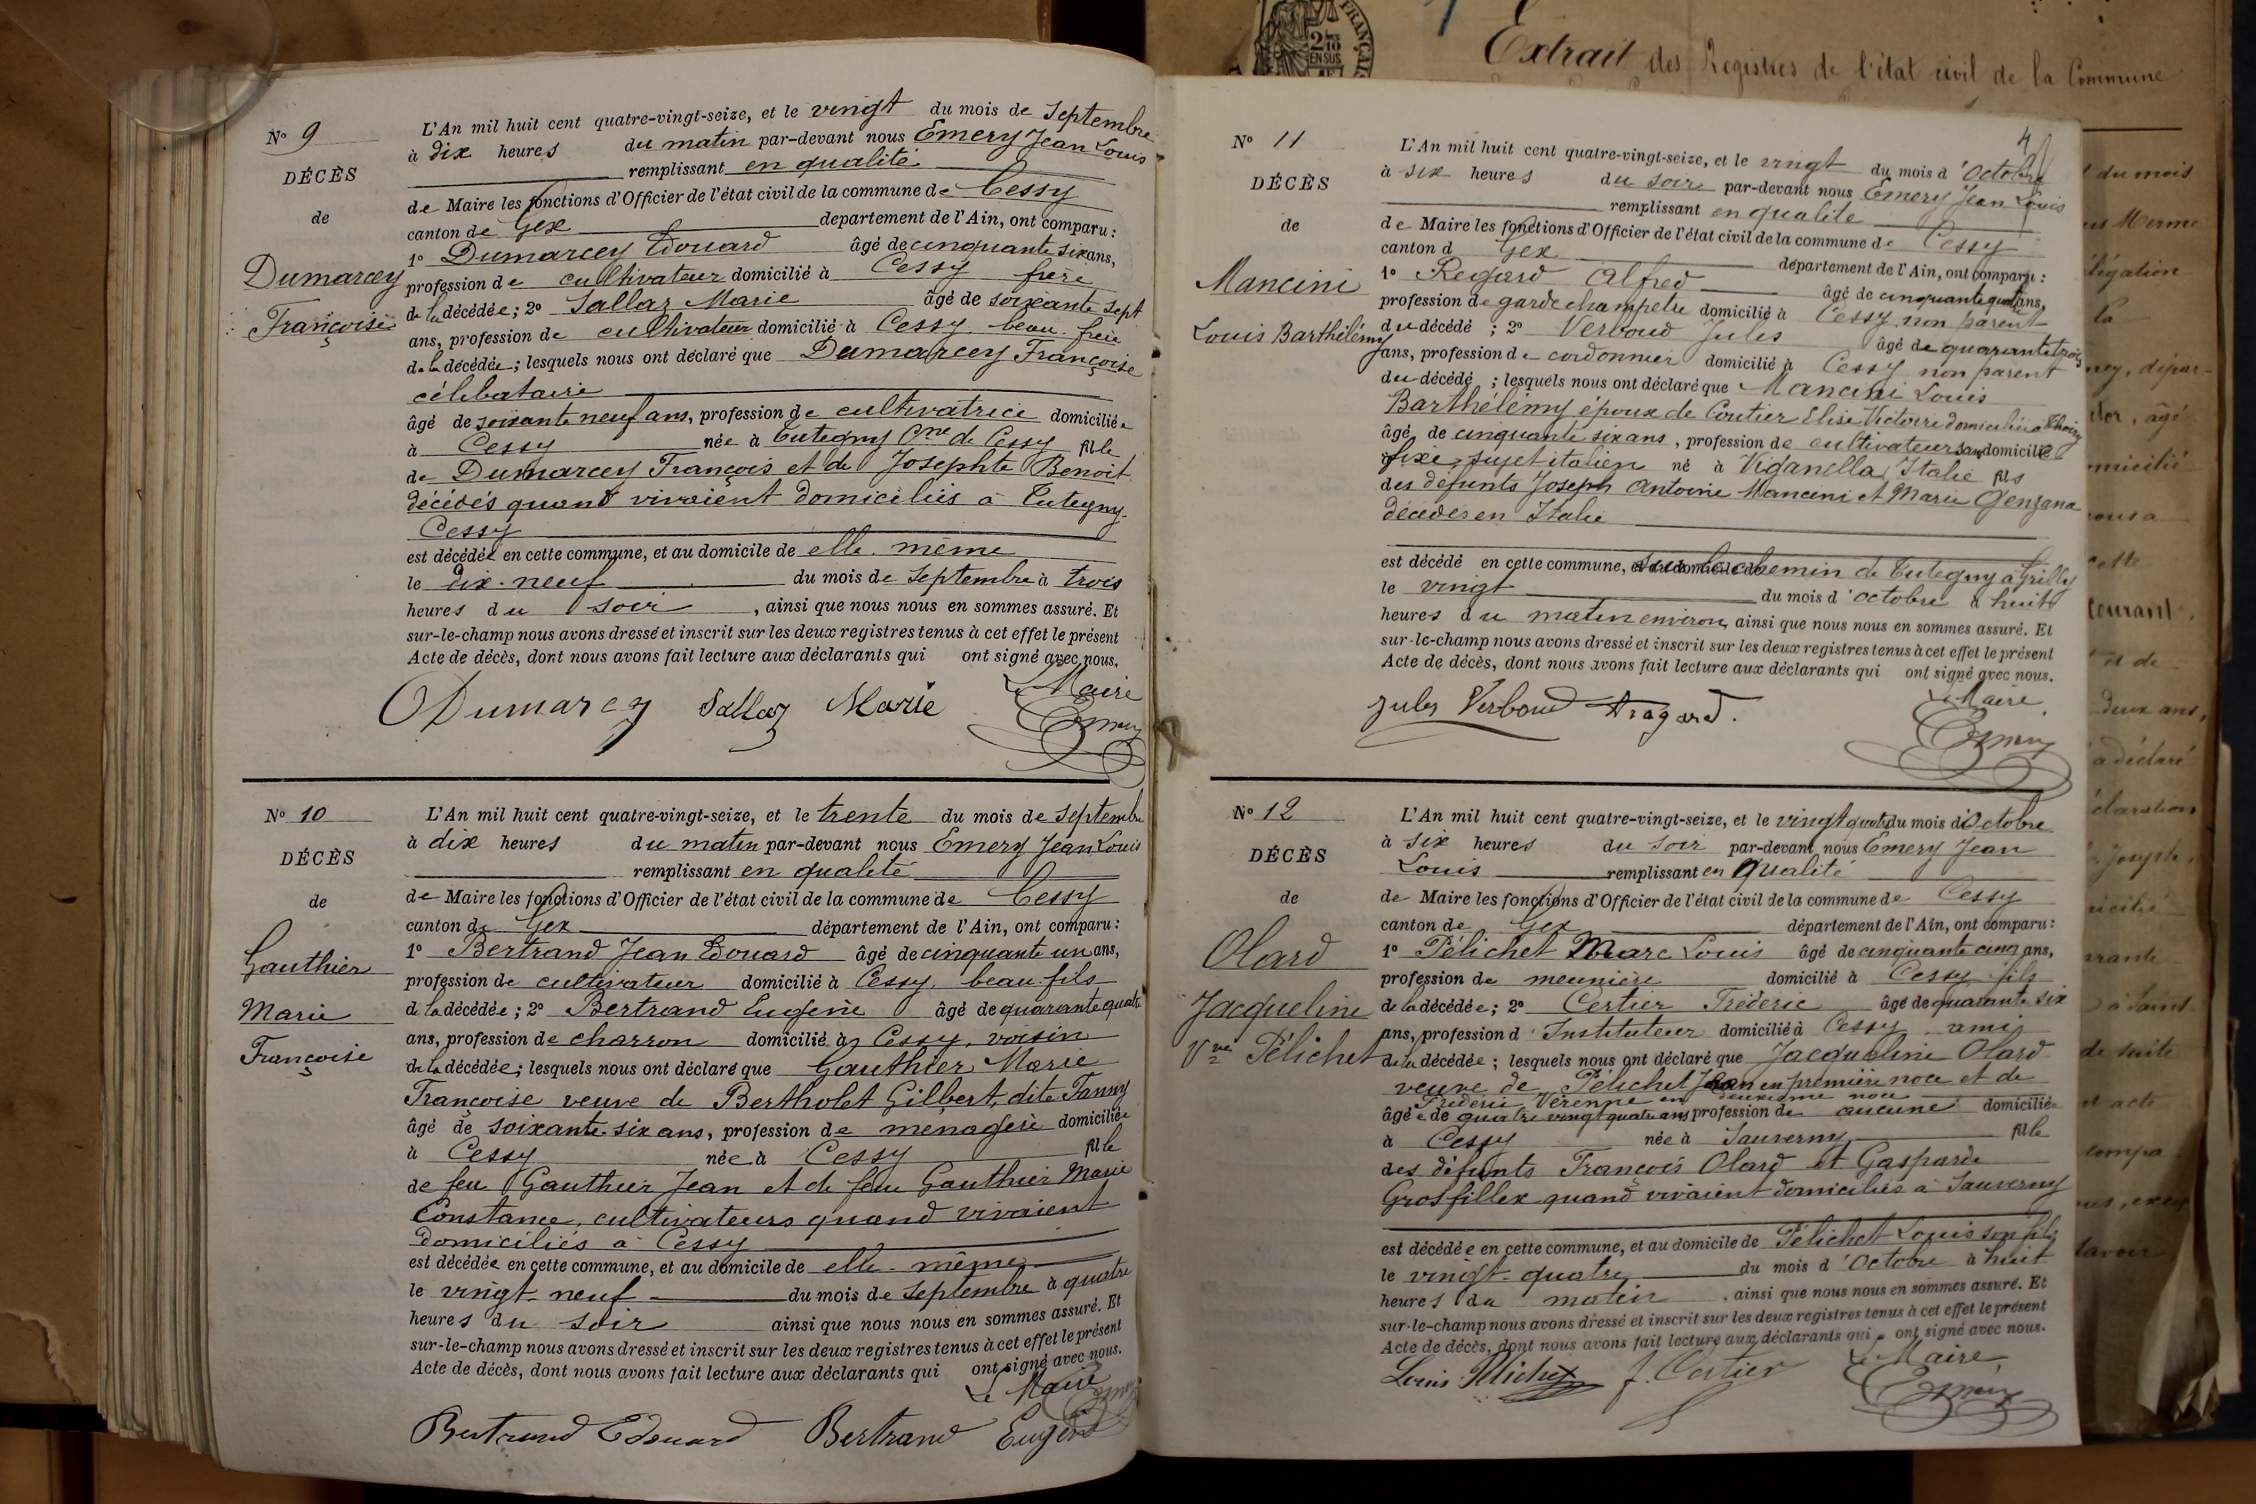 N° 9
DÉCÈS
de
Dumarcey
Françoise
L'An mil huit cent quatre-vingt-seize, et le vingt du mois de Septembre
à dix heures du matin par-devant nous Emery Jean Louis
remplissant en qualité
de Maire les fonctions d'Officier de l'état civil de la commune de Cessy
canton de Gex département de l'Ain, ont comparu :
1° Dumarcey Edouard âgé de cinquante six ans,
profession de cultivateur domicilié à Cessy frère
de la décédée ; 2° Sallaz Marie âgé de soixante sept
ans, profession de cultivateur domicilié à Cessy beau-frère
de la décédée ; lesquels nous ont déclaré que Dumarcey Françoise
célibataire
âgée de soixante neuf ans, profession de cultivatrice domiciliée
à Cessy née à Tutegny Cne de Cessy fille
de Dumarcey François et de Josephte Benoit
décédés quand vivaient domiciliés à Tutegny-
Cessy
est décédée en cette commune, et au domicile de elle-même
le dix-neuf du mois de Septembre à trois
heures du soir, ainsi que nous nous en sommes assuré. Et
sur-le-champ nous avons dressé et inscrit sur les deux registres tenus à cet effet le présent
Acte de décès, dont nous avons fait lecture aux déclarants qui ont signé avec nous.
Le Maire
Dumarcey Sallaz Marie Emery
N° 10
DÉCÈS
de
Gauthier
Marie
Françoise
L'An mil huit cent quatre-vingt-seize, et le trente du mois de Septembre
à dix heures du matin par-devant nous Emery Jean Louis
remplissant en qualité
de Maire les fonctions d'Officier de l'état civil de la commune de Cessy
canton de Gex département de l'Ain, ont comparu :
1° Bertrand Jean Edouard âgé de cinquante un ans,
profession de cultivateur domicilié à Cessy, beau-fils
de la décédée ; 2° Bertrand Eugène âgé de quarante quatre
ans, profession de charron domicilié à Cessy, voisin
de la décédée ; lesquels nous ont déclaré que Gauthier Marie
Françoise veuve de Bertholet Gilbert, dite Fanny
âgée de soixante-six ans, profession de ménagère domiciliée
à Cessy née à Cessy fille
de feu Gauthier Jean et de feue Gauthier Marie
Constance, cultivateurs quand vivaient
domiciliés à Cessy
est décédée en cette commune, et au domicile de elle-même
le vingt-neuf du mois de Septembre à quatre
heures du soir ainsi que nous nous en sommes assuré. Et
sur-le-champ nous avons dressé et inscrit sur les deux registres tenus à cet effet le présent
Acte de décès, dont nous avons fait lecture aux déclarants qui ont signé avec nous.
Le Maire
Emery
Bertrand Edouard Bertrand Eugène
Extrait des Registres de l'état civil de la Commune
4
N° 11
DÉCÈS
de
Mancini
Louis Barthélémy
L'An mil huit cent quatre-vingt-seize, et le vingt du mois d'Octobre
à six heures du soir par-devant nous Emery Jean Louis
remplissant en qualité
de Maire les fonctions d'Officier de l'état civil de la commune de Cessy
canton d Gex département de l'Ain, ont comparu :
1° Regard Alfred âgé de cinquante quatre ans,
profession de garde champêtre domicilié à Cessy non parent
du décédé ; 2° Verboud Jules âgé de quarante trois
ans, profession de cordonnier domicilié à Cessy non parent
du décédé ; lesquels nous ont déclaré que Mancini Louis
Barthélémy époux de Coutier Elise Victoire domiciliée à Thoiry
âgé de cinquante six ans, profession de cultivateur sans domicile
fixe, sujet italien né à Viganella, Italie fils
des défunts Joseph Antoine Mancini et Marie Genzana
décédés en Italie
est décédé en cette commune, sur le chemin de Tutegny à Grilly
le vingt du mois d'octobre à huit
heures du matin environ, ainsi que nous nous en sommes assuré. Et
sur-le-champ nous avons dressé et inscrit sur les deux registres tenus à cet effet le présent
Acte de décès, dont nous avons fait lecture aux déclarants qui ont signé avec nous.
Le Maire
Jules Verboud Aragard. Emery
N° 12
DÉCÈS
de
Olard
Jacqueline
Vve Pélichet
L'An mil huit cent quatre-vingt-seize, et le vingt quatre du mois d'Octobre
à six heures du soir par-devant nous Emery Jean
Louis remplissant en qualité
de Maire les fonctions d'Officier de l'état civil de la commune de Cessy
canton de Gex département de l'Ain, ont comparu :
1° Pélichet Marc Louis âgé de cinquante cinq ans,
profession de meunière domicilié à Cessy fils
de la décédée ; 2° Certier Fréderic âgé de quarante six
ans, profession d'Instituteur domicilié à Cessy ami
de la décédée ; lesquels nous ont déclaré que Jacqueline Olard
veuve de Pélichet Jean en première noce et de
Fréderic Verenne en deuxième noce
âgée de quatre vingt quatre ans profession de aucune domiciliée
à Cessy née à Sauverny fille
des défunts François Olard et Gasparde
Grosfillex quand vivaient domiciliés à Sauverny
est décédée en cette commune, et au domicile de Pélichet Louis son fils
le vingt-quatre du mois d'Octobre à huit
heures du matin, ainsi que nous nous en sommes assuré. Et
sur-le-champ nous avons dressé et inscrit sur les deux registres tenus à cet effet le présent
Acte de décès, dont nous avons fait lecture aux déclarants qui ont signé avec nous.
Le Maire,
Louis Pélichet f. Certier Emery